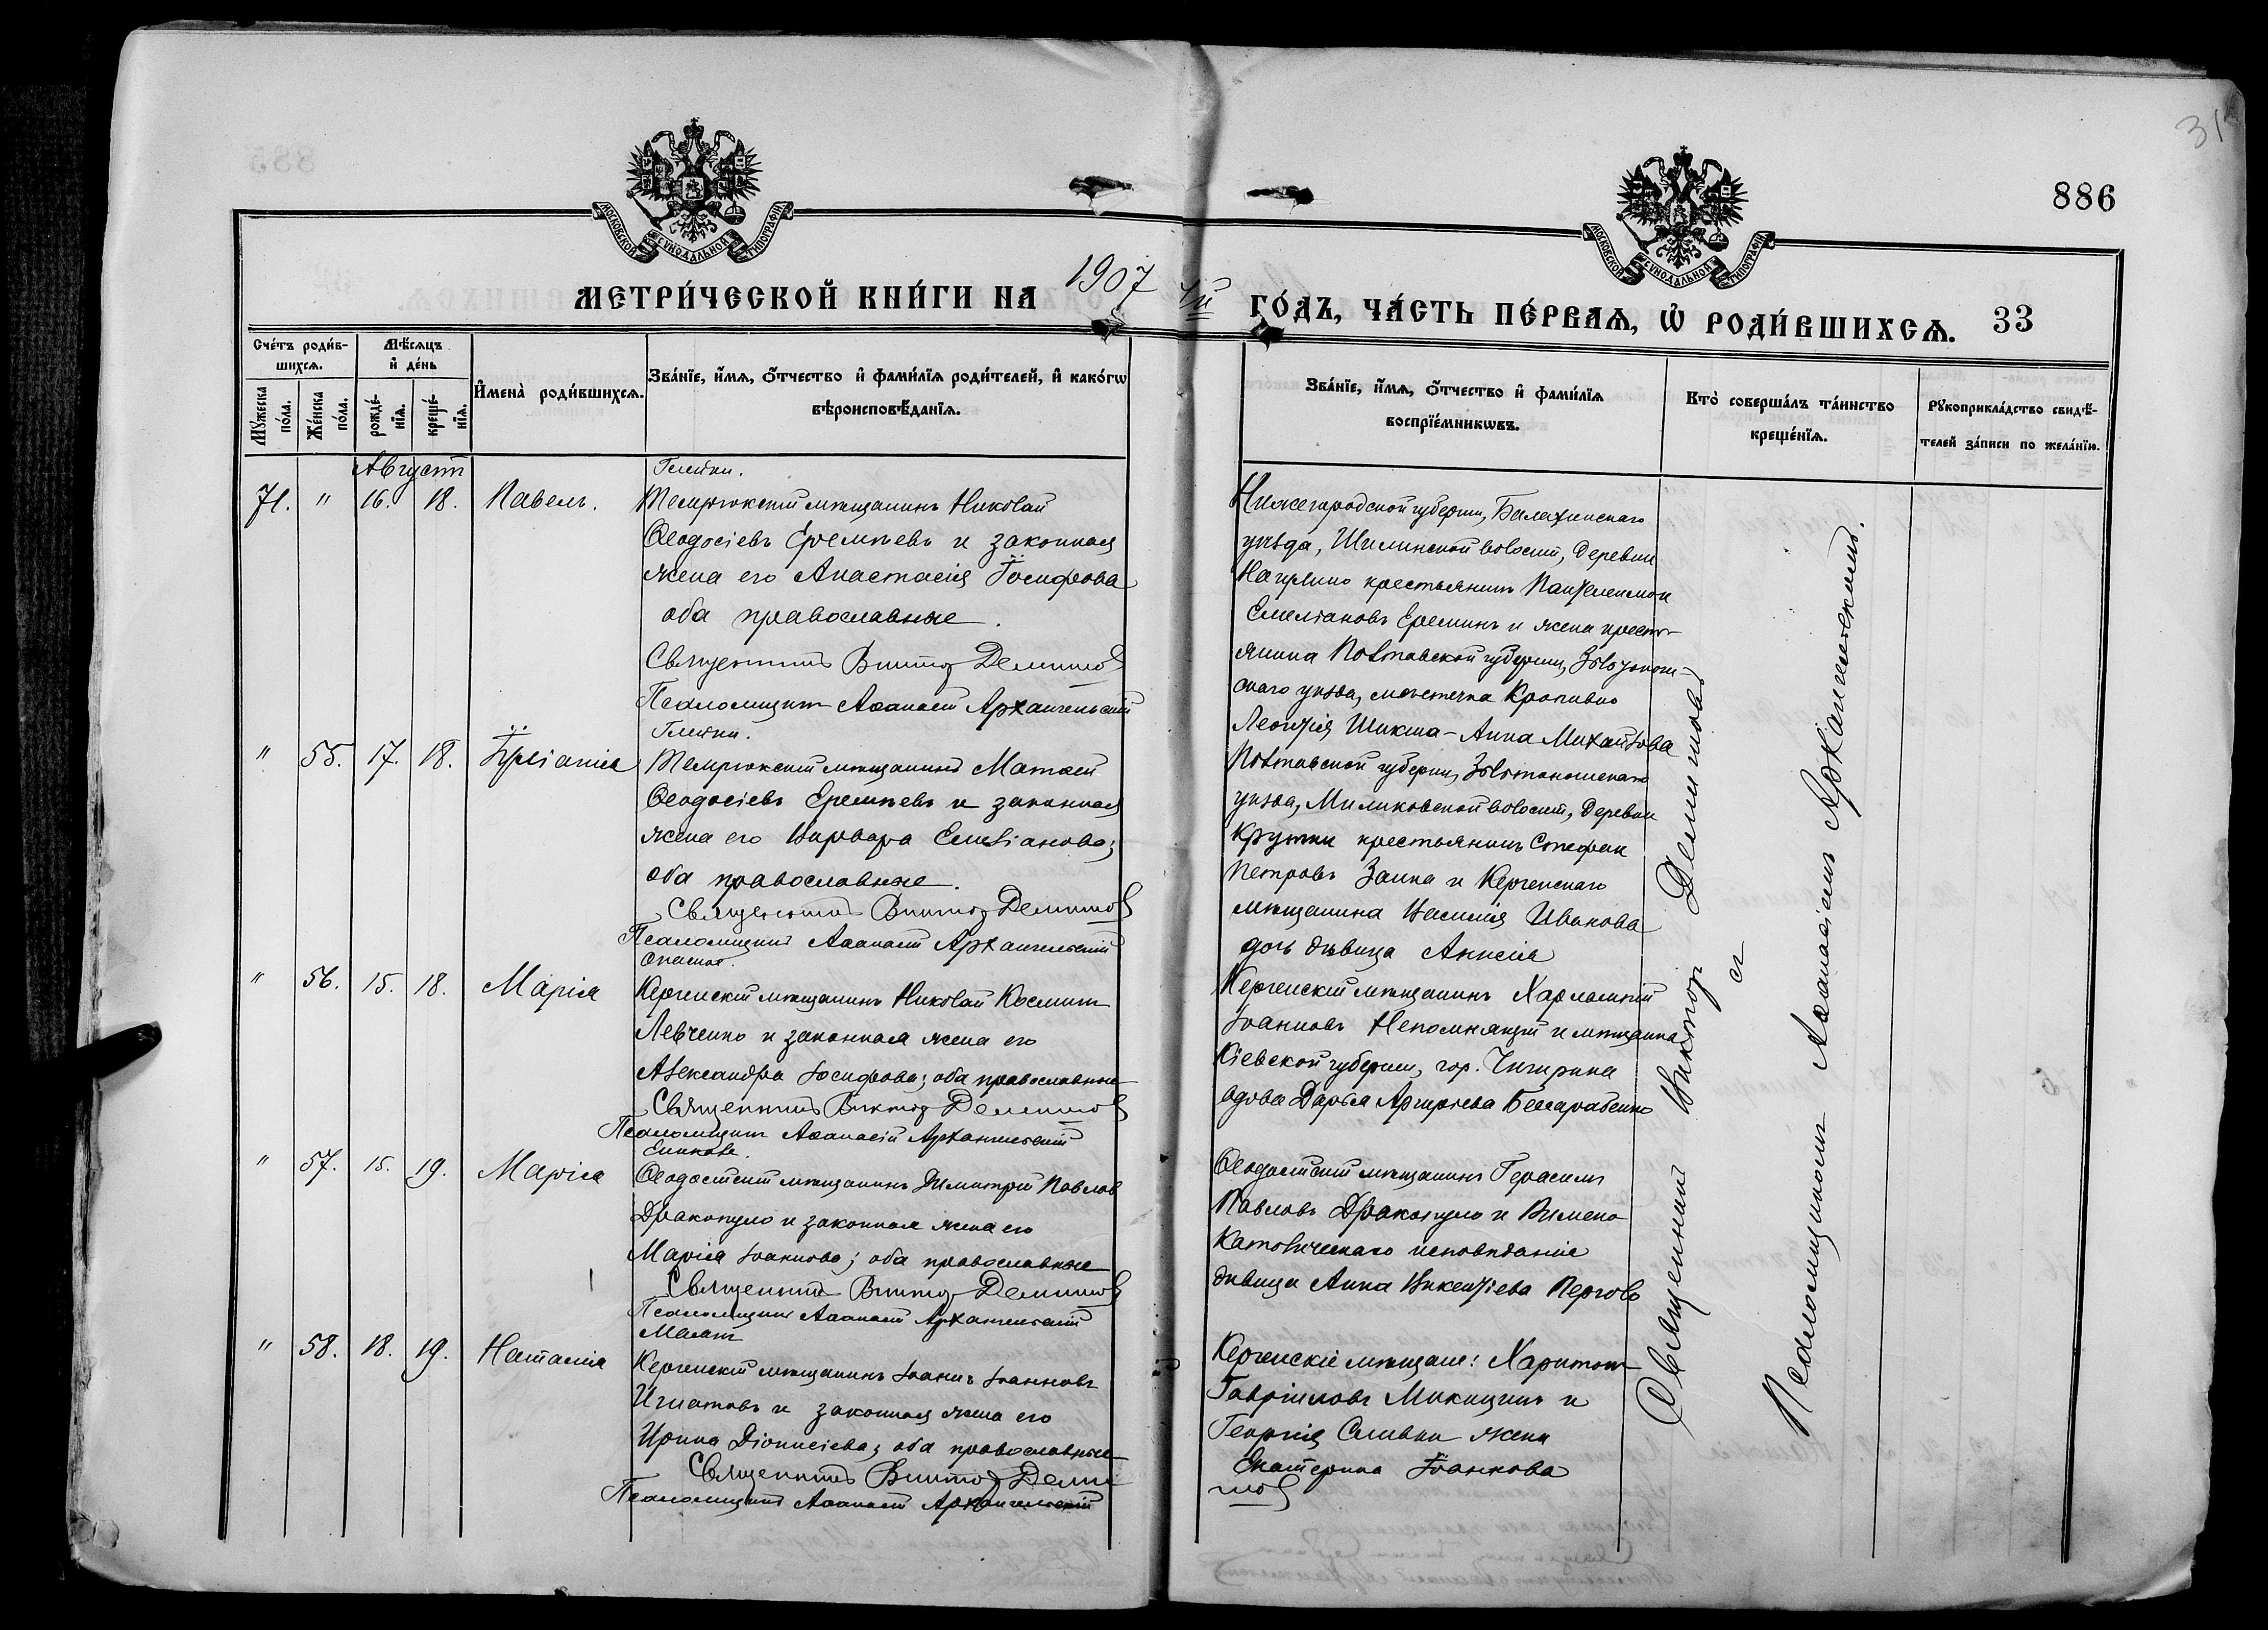 886
МОСКОВСКОЙ СѴНОДАЛЬНОЙ ТИПОГРАФІИ
МОСКОВСКОЙ СѴНОДАЛЬНОЙ ТИПОГРАФІИ
МЕТРИ́ЧЕСКОЙ КНИ́ГИ НА 1907 й
ГО́ДЪ, ЧА́СТЬ ПЕ́РВАѦ, Ѡ҆ РОДИ́ВШИХСѦ. 33
Сче́тъ роди́в-
шихсѧ.
Мꙋжеска по́ла.
Же́нска по́ла.
Мѣ́сѧцъ
и҆ де́нь
рожде́-
нїѧ.
креще́-
нїѧ.
И҆мена̀ роди́вшихсѧ.
Зва́нїе, и҆́мѧ, ѻ҆́тчество и҆ фами́лїѧ роди́телей, и҆ како́гѡ
вѣроисповѣ́данїѧ.
Зва́нїе, и҆́мѧ, ѻ҆́тчество и҆ фами́лїѧ
воспрїе́мникѡвъ.
Кто̀ соверша́лъ та́инство
креще́нїѧ.
Рꙋкоприкла́дство свидѣ́-
телей за́писи по жела́нїю.
Августъ
71. " 16. 18. Павелъ.
Темрюкскій мѣщанинъ Николай
Ѳеодосіевъ Еремѣевъ и законная
жена его Анастасія Іосифова
оба православные.
Священникъ Викторъ Демишовъ
Псаломщикъ Аѳанасій Архангельскій
Нижегородской губерніи, Балахинскаго
уѣзда, волости, деревни
крестьянинъ Пантелеимон
Емеліановъ Ереминъ и жена кресть-
янина Полтавской губерніи, Золотонош-
скаго уѣзда, мѣстечка Кропивно
Леонтія Шикша - Анна Михайлова
" 55. 17. 18. Іуліанія
Темрюкскій мѣщанинъ Матѳей
Ѳеодосіевъ Еремѣевъ и законная
жена его Варвара Емеліанова;
оба православные.
Священникъ Викторъ Демишовъ
Псаломщикъ Аѳанасій Архангельскій
Полтавской губерніи, Золотоношскаго
уѣзда, волости, деревни
Крутки крестьянинъ Стефан
Петровъ Заика и Керченскаго
мѣщанина Василія Иванова
дочь дѣвица Анисія
" 56. 15. 18. Марія
Керченскій мѣщанинъ Николай Косминъ
Левченко и законная жена его
Александра Іосифова; оба православные
Священникъ Викторъ Демишовъ
Псаломщикъ Аѳанасій Архангельскій
Керченскій мѣщанинъ Харлампій
Іоанновъ Непомнящій и мѣщанка
Кіевской губерніи, гор. Чигирина
вдова Дарья Бессарабенко
" 57. 15. 19. Марія
Еникале.
Ѳеодосійскій мѣщанинъ Димитрій Павлов
Дракопуло и законная жена его
Марія Іоаннова; оба православные
Священникъ Викторъ Демишовъ
Псаломщикъ Аѳанасій Архангельскій
Ѳеодосійскій мѣщанинъ Герасимъ
Павловъ Дракопуло и Римско-
Католическаго исповѣданія
дѣвица Анна Викентіева
" 58. 18. 19. Наталія
Маякъ
Керченскій мѣщанинъ Іоаннъ Іоанновъ
Игнатовъ и законная жена его
Ирина Діонисіева; оба православные
Священникъ Викторъ Деми-
шовъ
Псаломщикъ Аѳанасій Архангельскій
Керченскіе мѣщане: Харитонъ
Гавріиловъ Микицинъ и
Георгія Сливки жена
Екатерина Іоаннова
Священникъ Викторъ Демишовъ
съ
Псаломщикомъ Аѳанасіемъ Архангельскимъ.